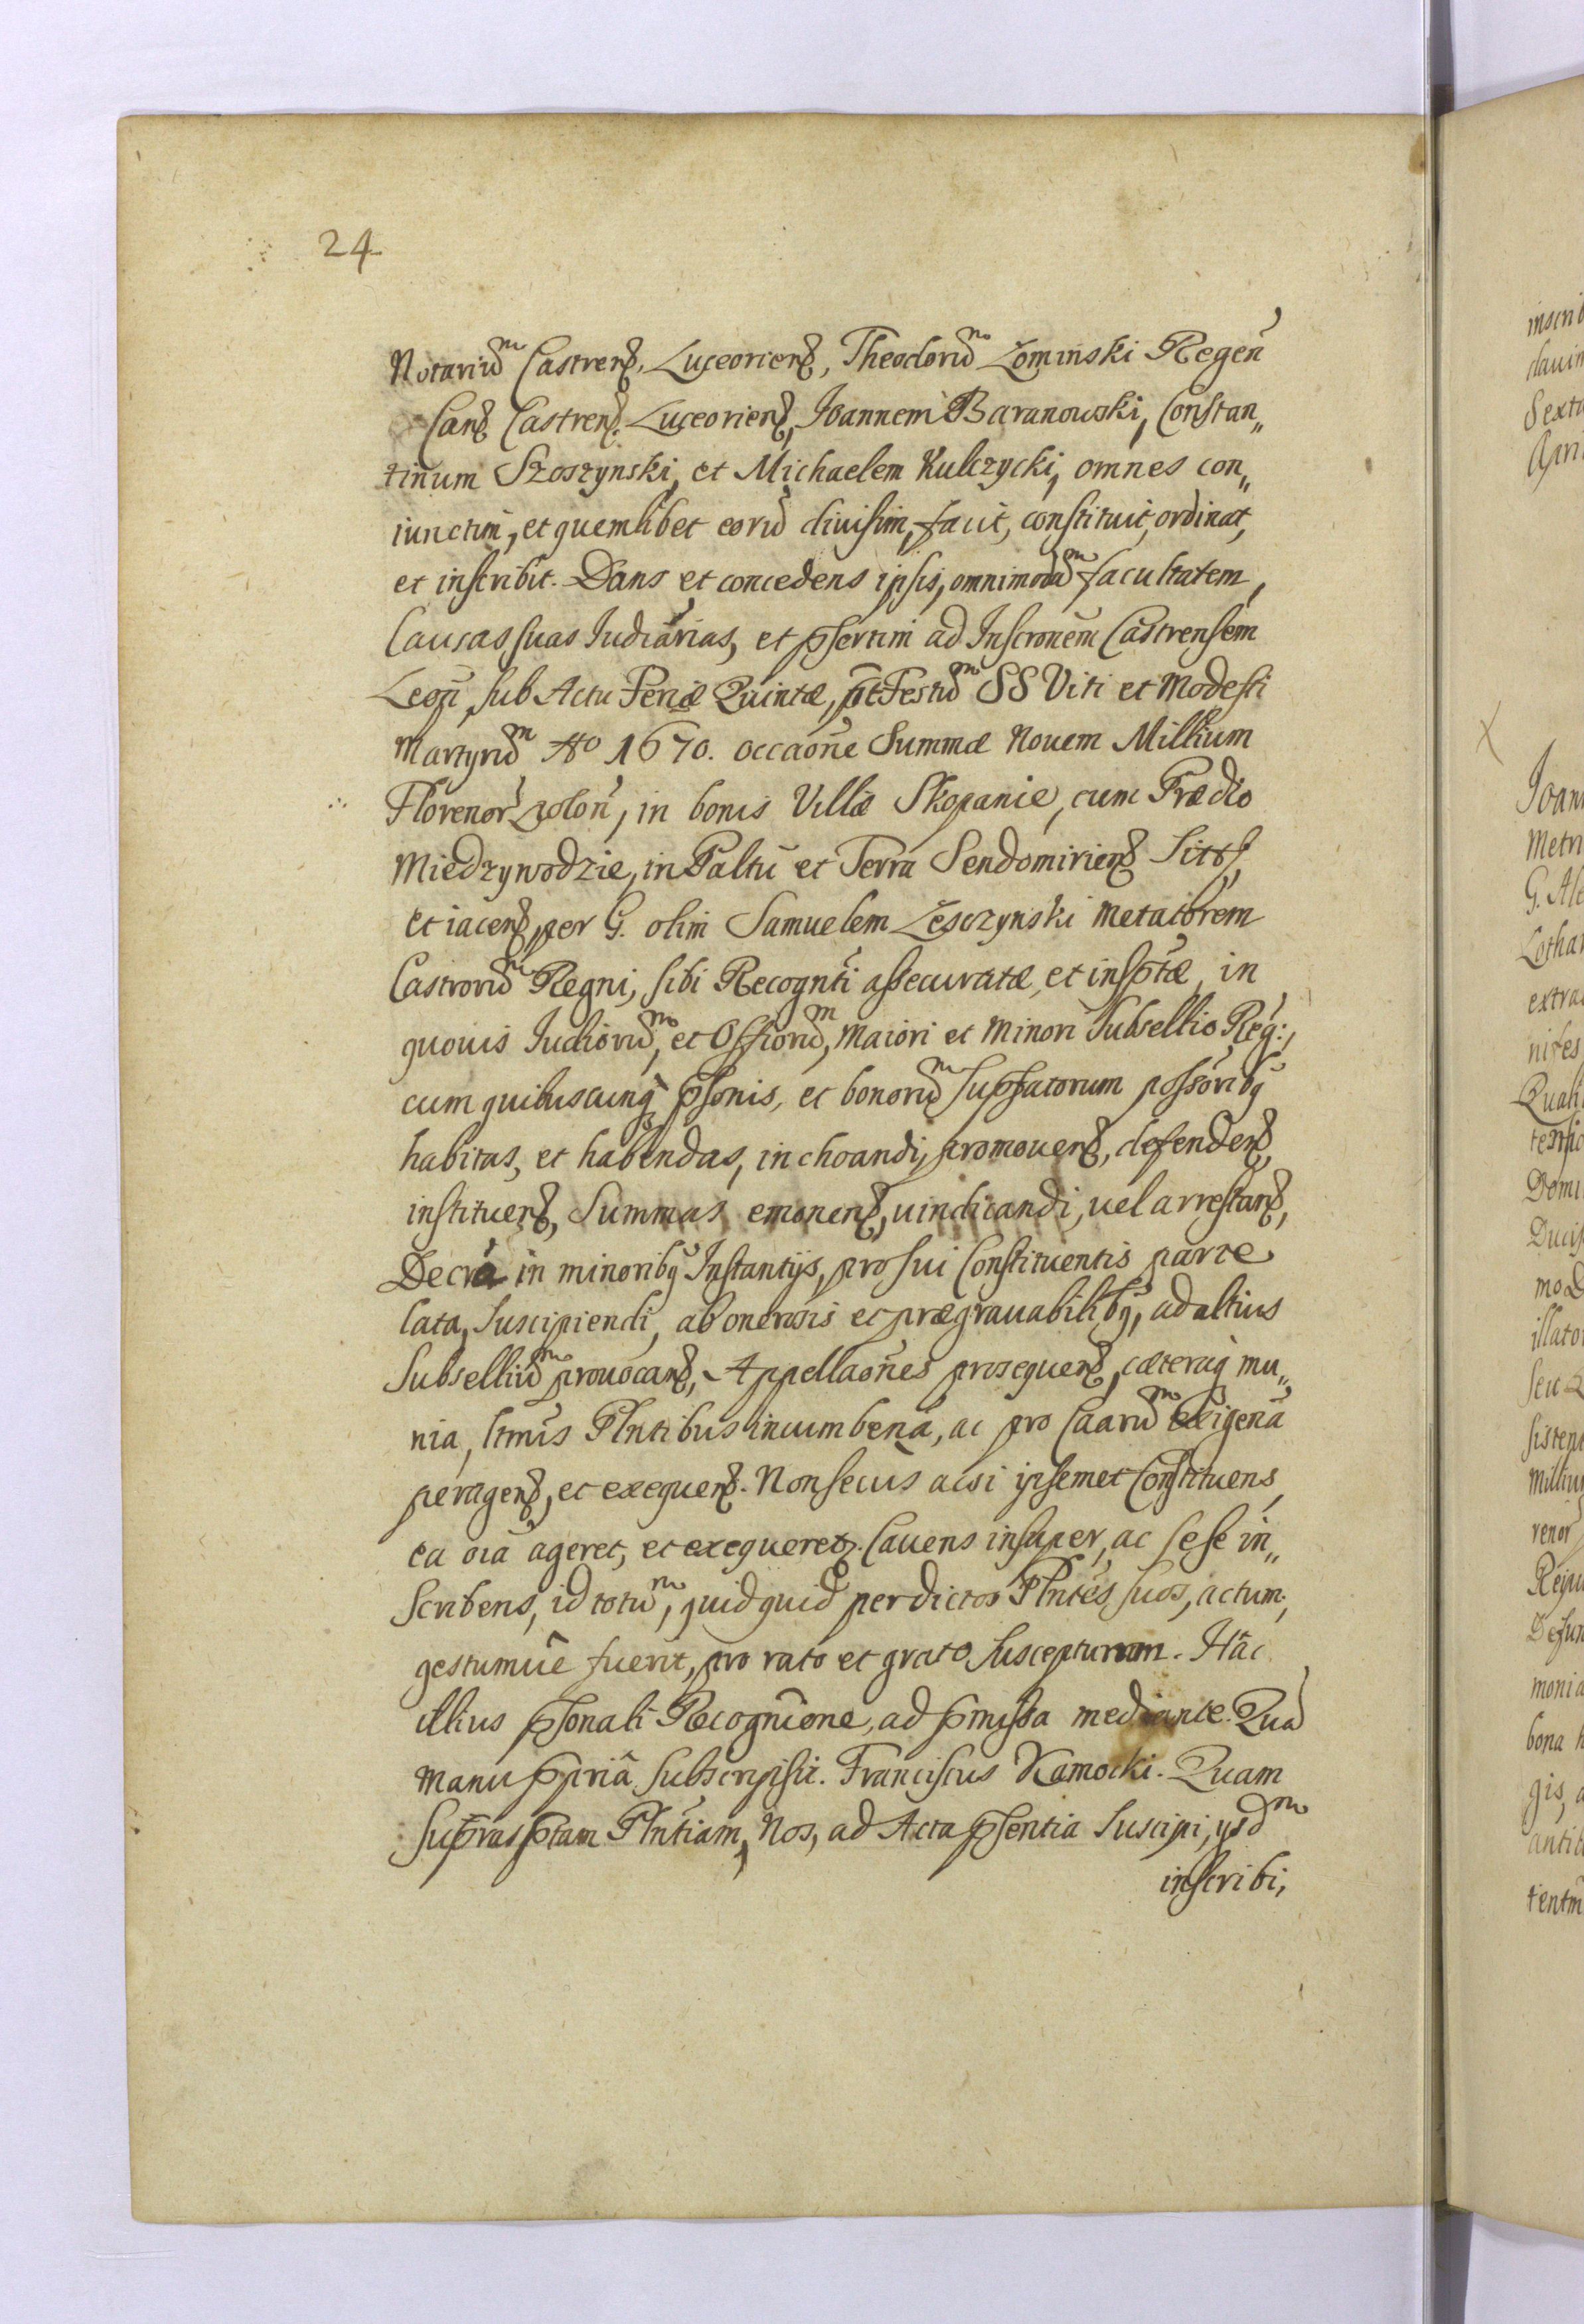 24
Notariũ Castreñ. Luceorieñ, Theodorũ Łominski Regeñ
Canc̃ Castreñ. Luceorieñ, Ioannem Baranowski, Constan„
tinum Szoszynski, et Michaelem Kulczycki, omnes con„
iunctim, et quemlibet eorũ diuisim, facit, constituit, ordinat,
et inscribit. Dans et concedens ipsis, omnimodã facultatem,
Causas suas Iudiãrias, et p̃sertim ad Inscrõnem Castrensem
sub Actu Feriæ Quintæ, p̃t Festũ SS Viti et Modesti
Martyrũ Aõ 1670. occaõne Summæ Nouem Millium
Florenor̃ Polon̄, in bonis Villæ Skopanie, cum Prædio
Miedzywodzie, in Paltũ et Terra Sendomirieñ Sitis,
et iaceñ, per G. olim Samuelem Leszczynski Metatorem
Castrorũ Regni, sibi Recognñti assecuratæ, et insp̃tæ, in
quouis Iudiorũ, et Offiorũ, Maiori et Minori Subsellio Reg:,
cum quibuscunq̃ p̃sonis, et bonorũ sup̃fatorum possõribq̃
habitas, et habendas, inchoandi, promoueñ, defendeñ,
institueñ, Summas emoneñ, uindicandi, uel arrestañ,
Decrã in minoribq̃ Instantijs, pro sui Constituentis parte
lata, Suscipiendi, ab onerosis et prægrauabilibq̃, ad altius
Subselliũ prouocañ, Appellaõnes prosequeñ, cæteraq̃ mu„
nia, ltmis Plñtibus incumbeñã, ac pro Caarũ exigeñã
perageñ, et exequeñ. Non secus acsi ipsemet Constituens
ea oĩa ageret, et exequeret̃. Cauens insuper, ac sese in„
scribens, id totũ, quidquid per dictos Plñtes suos, actum,
gestumuè fuerit, pro rato et grato Suscepturum. Hãc
illius p̃sonali Recognĩone, ad p̃missa mediante. Quã
manu p̃priâ Subscripsit. Franciscus Kamocki. Quam
Suprasp̃tam Plñtiam, Nos, ad Acta p̃sentia Suscipi, ysdm
inscribi,